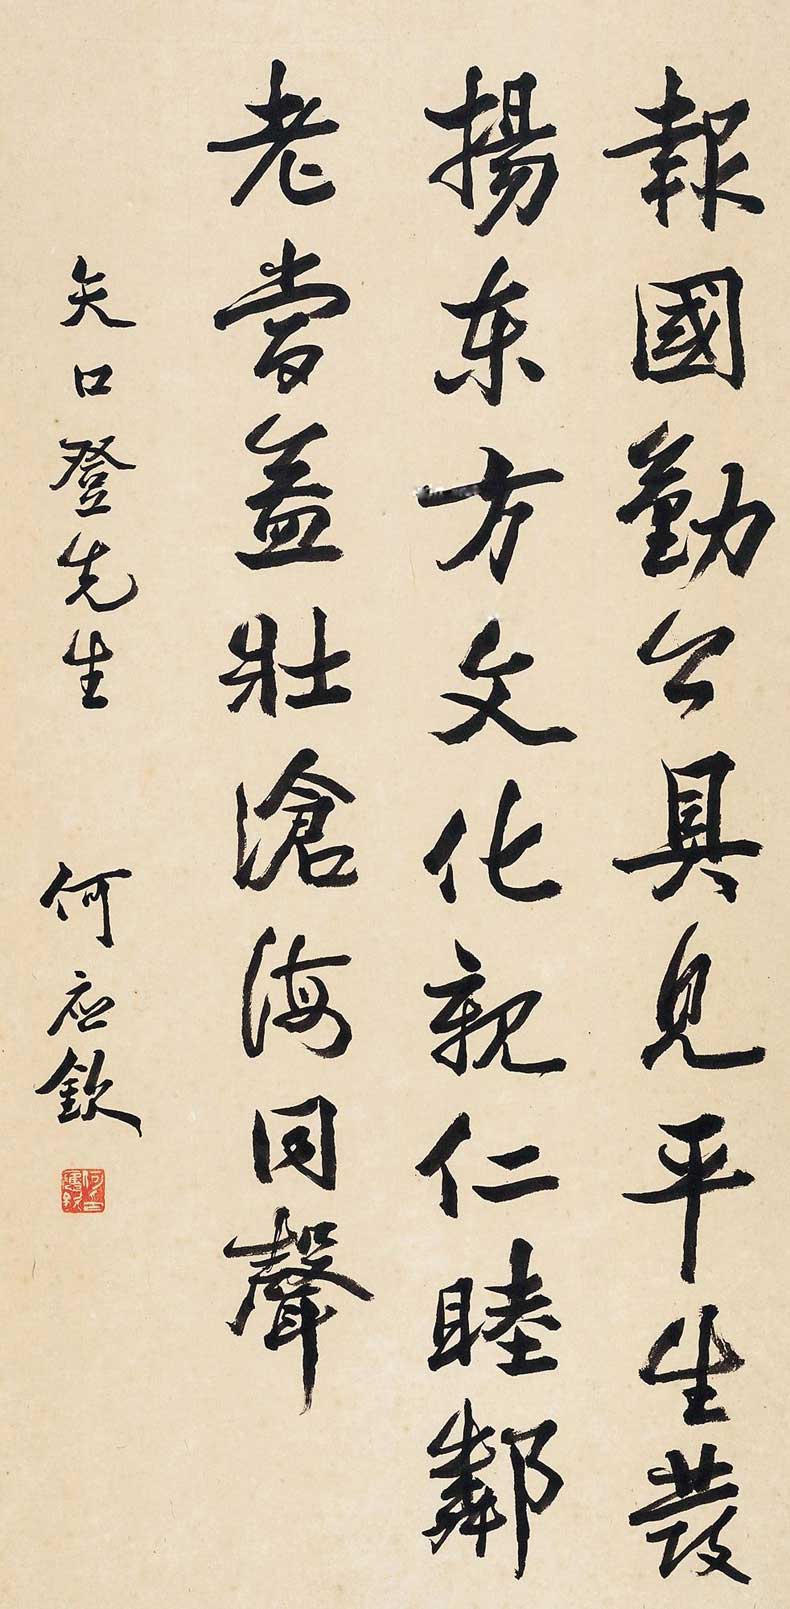 報國勤公具見平生發
揚東方文化親仁睦鄰
老當益壯滄海同聲
矢口登先生 何應欽